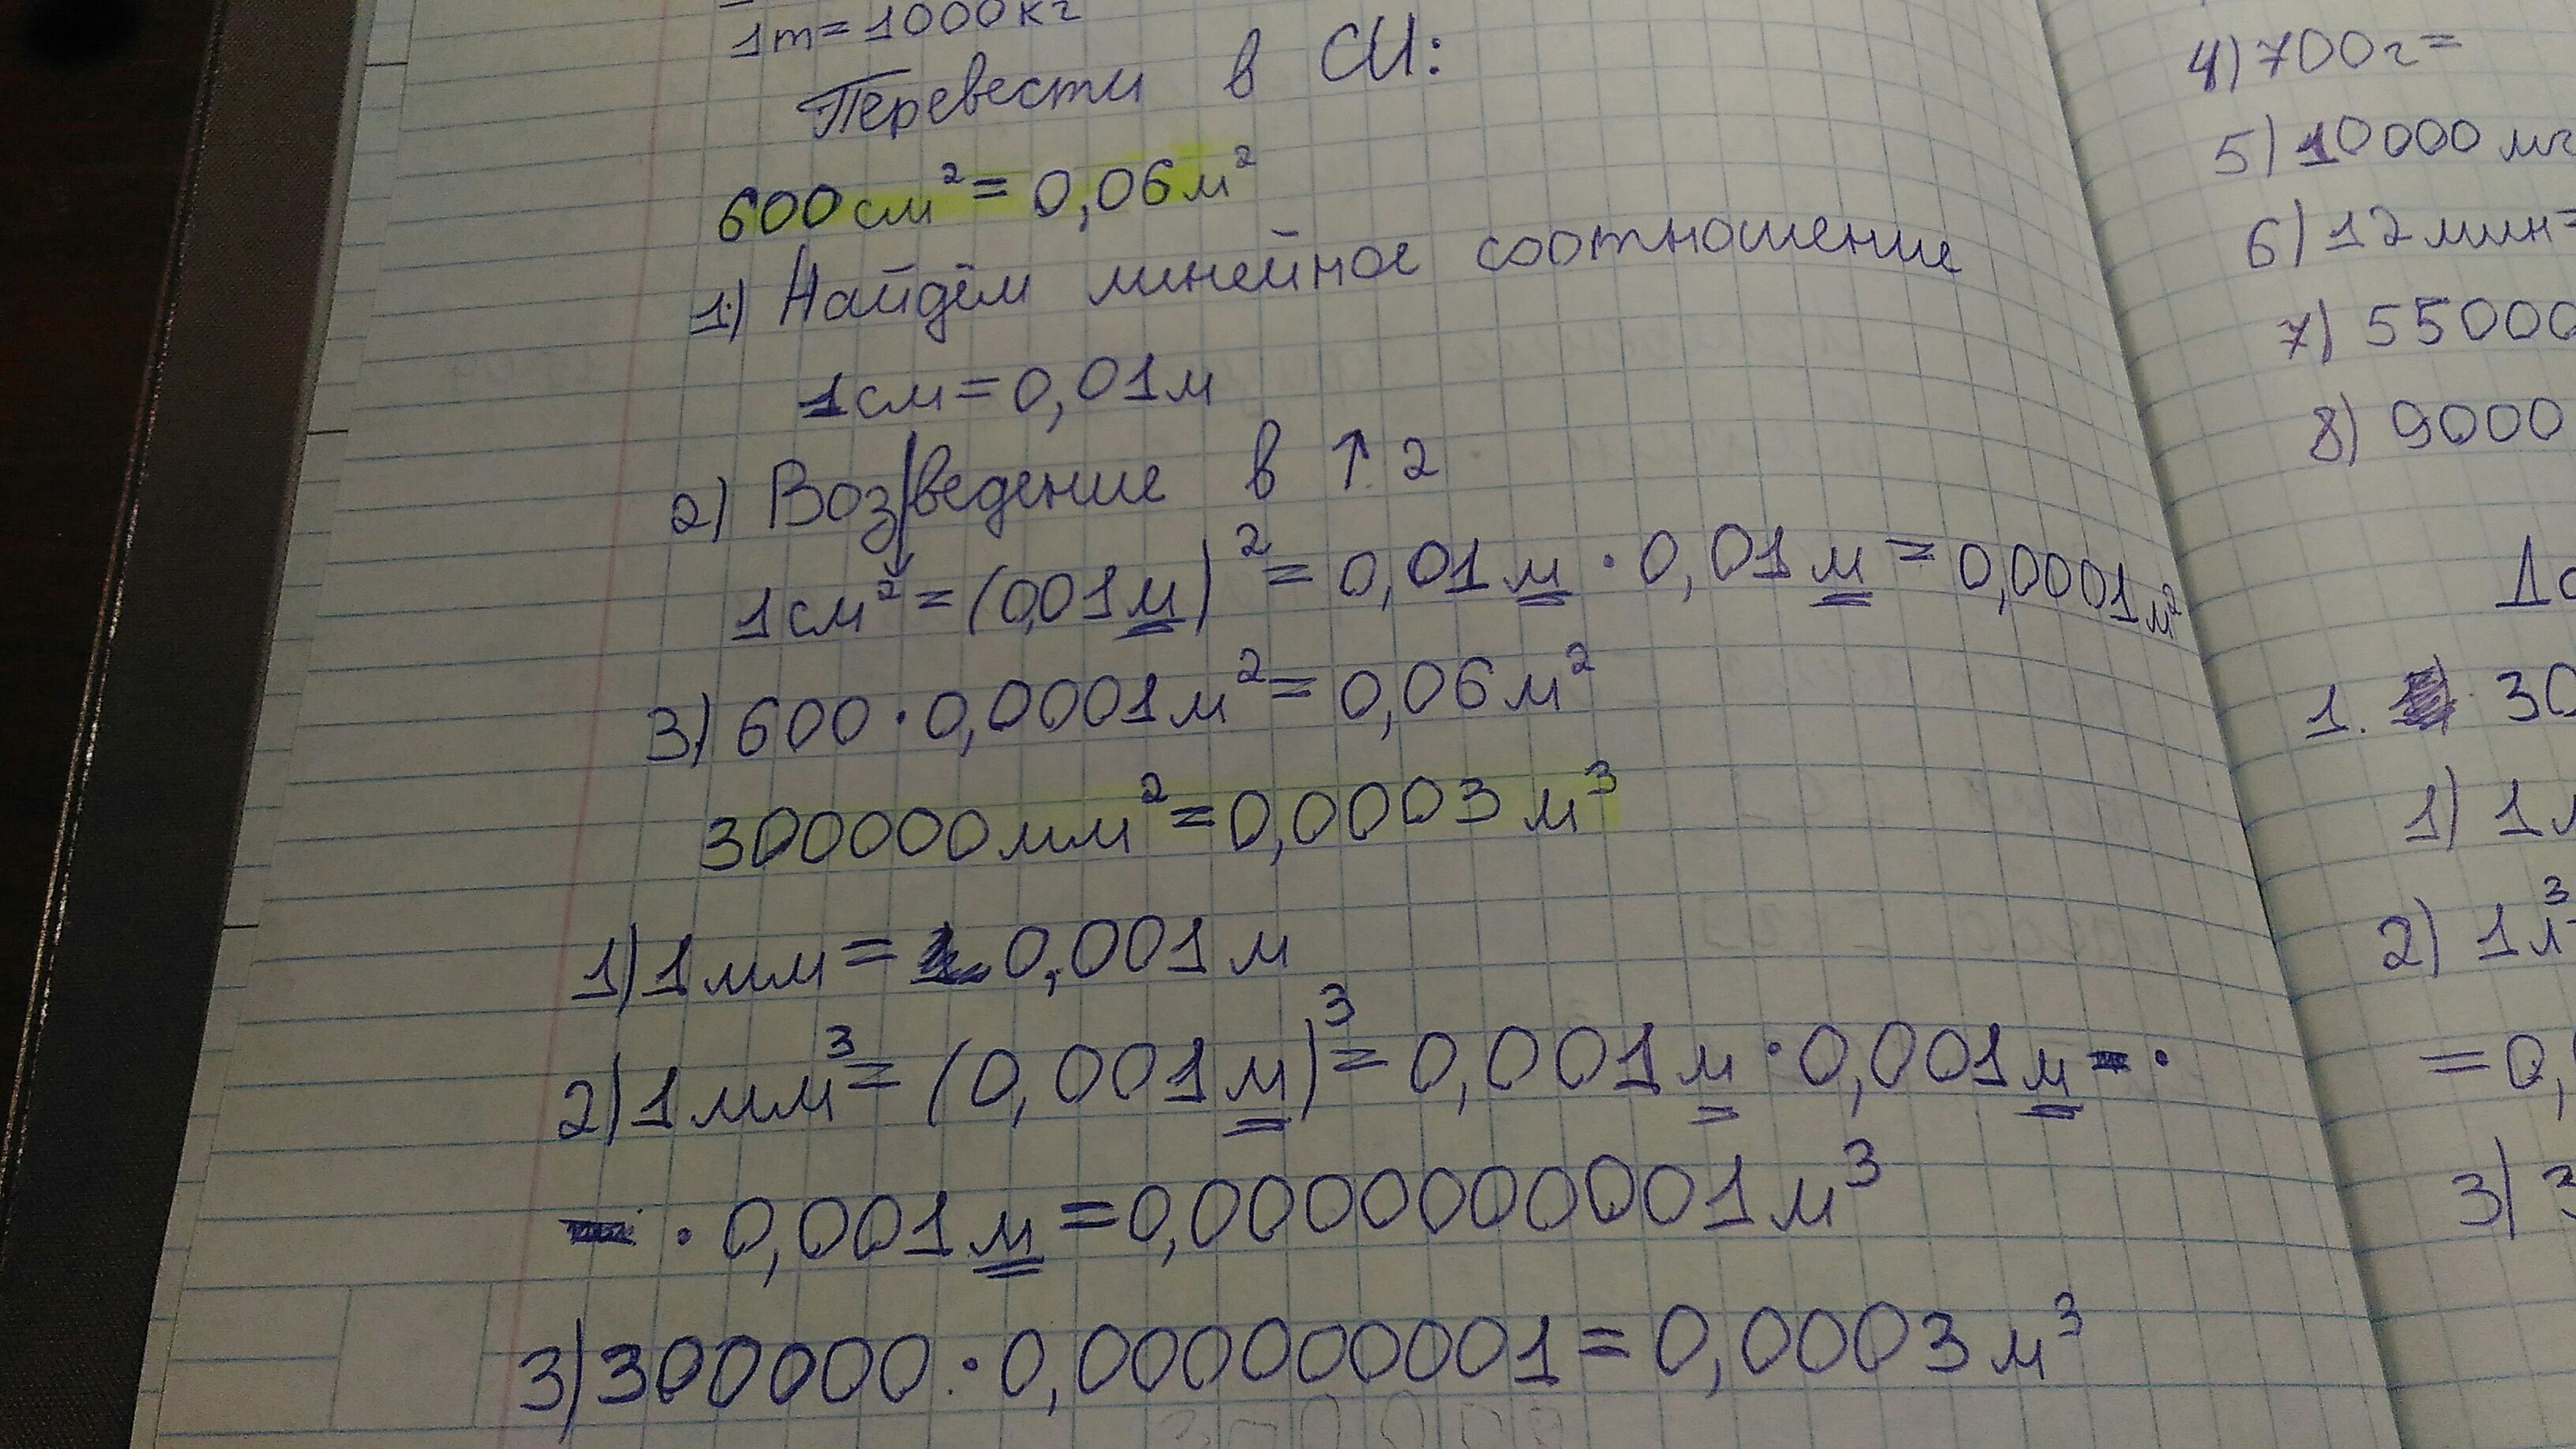 1т=1000кг
Перевести в СИ:
600см²=0,06м²
1) Найдём линейное соотношение
1см=0,01м
2) Возведение в ↑ 2
1см²=(0,01м)²=0,01м·0,01м=0,0001м²
3) 600·0,0001м²=0,06м²
300000мм²=0,0003м³
1) 1мм=0,001м
2) 1мм³=(0,001м)³=0,001м·0,001м·
·0,001м=0,00000000001м³
3) 300000·0,000000001=0,0003м³
4) 700г=
5) 10000 мг
6) 12мин=
7) 55000
8) 9000
1. 30
1) 1
2) 1
=0,
3) 3